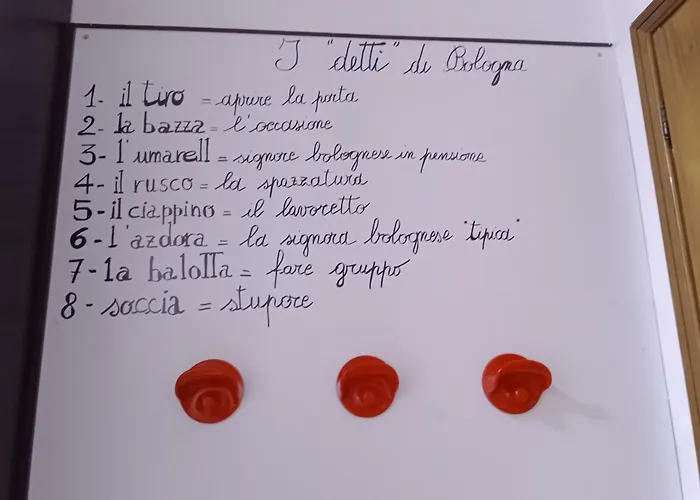 I "detti" di Bologna
1- il tiro = aprire la porta
2- la bazza = l'occasione
3- l'umarell = signore bolognese in pensione
4- il rusco = la spazzatura
5- il ciappino = il lavoretto
6- l'azdora = la signora bolognese "tipica"
7- la balotta = fare gruppo
8- soccia = stupore